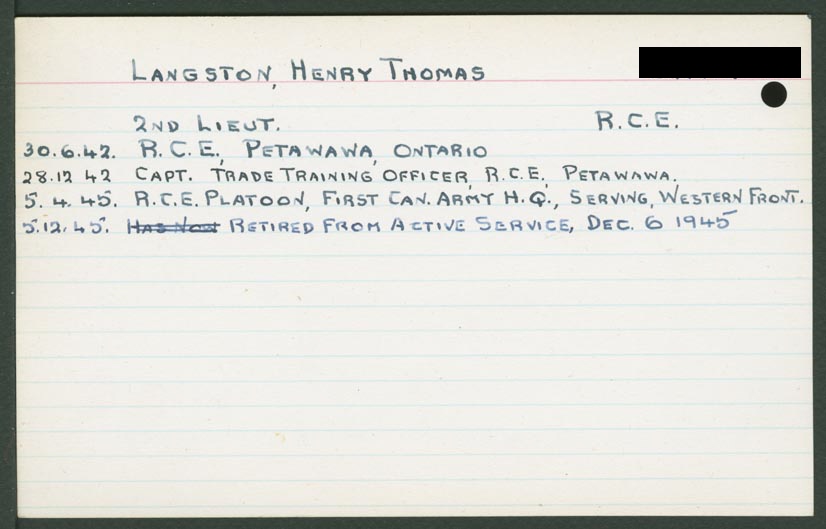 LANGSTON, HENRY THOMAS
2ND LIEUT. R.C.E.
30.6.42. R.C.E., PETAWAWA, ONTARIO
28.12 42 CAPT. TRADE TRAINING OFFICER, R.C.E., PETAWAWA.
5. 4. 45. R.C.E. PLATOON, FIRST CAN. ARMY H.Q., SERVING, WESTERN FRONT.
5.12.45. HAS NOW RETIRED FROM ACTIVE SERVICE, DEC. 6 1945